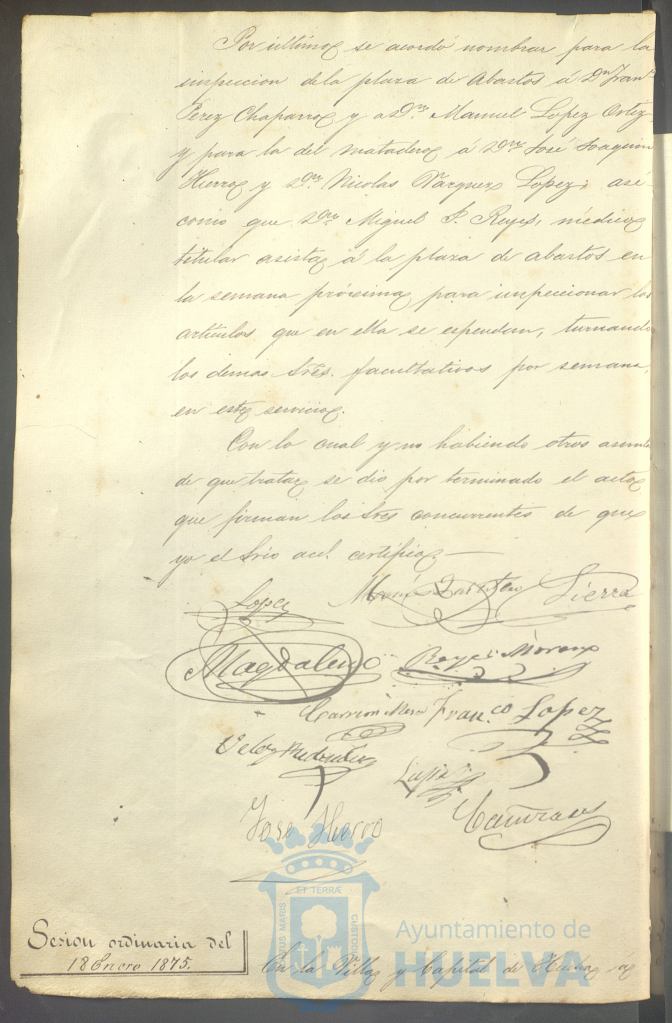 Por ultimo se acordó nombrar para la
inspeccion dela plaza de Abastos á Dn Franco
Pérez Chaparro y a Dn. Manuel Lopez Ortiz
y para la del matadero á Dn José Joaquin
Hierro y Dn Nicolas Vazquez Lopez; asi
como que Dn Miguel P. Reyes, médico
titular asista á la plaza de abastos en
la semana próxima para inspeccionar los
artículos que en ella se expendan, turnando
los demas Sres. facultativos por semana,
en este servicio.
Con lo cual y no habiendo otros asuntos
de que tratar se dio por terminado el acto
que firman los Sres concurrentes de que
yo el Srio acl. certifico—
Lopez Sierra
Magdaleno Reyes Moreno
Carrion Franco Lopez
Velez
José Hierro
Sesion ordinaria del
18 Enero 1875.
En la Villa y Capital de Huelva á
ET TERRÆ
CUSTODIA
TUS MARIS
Ayuntamiento de
HUELVA